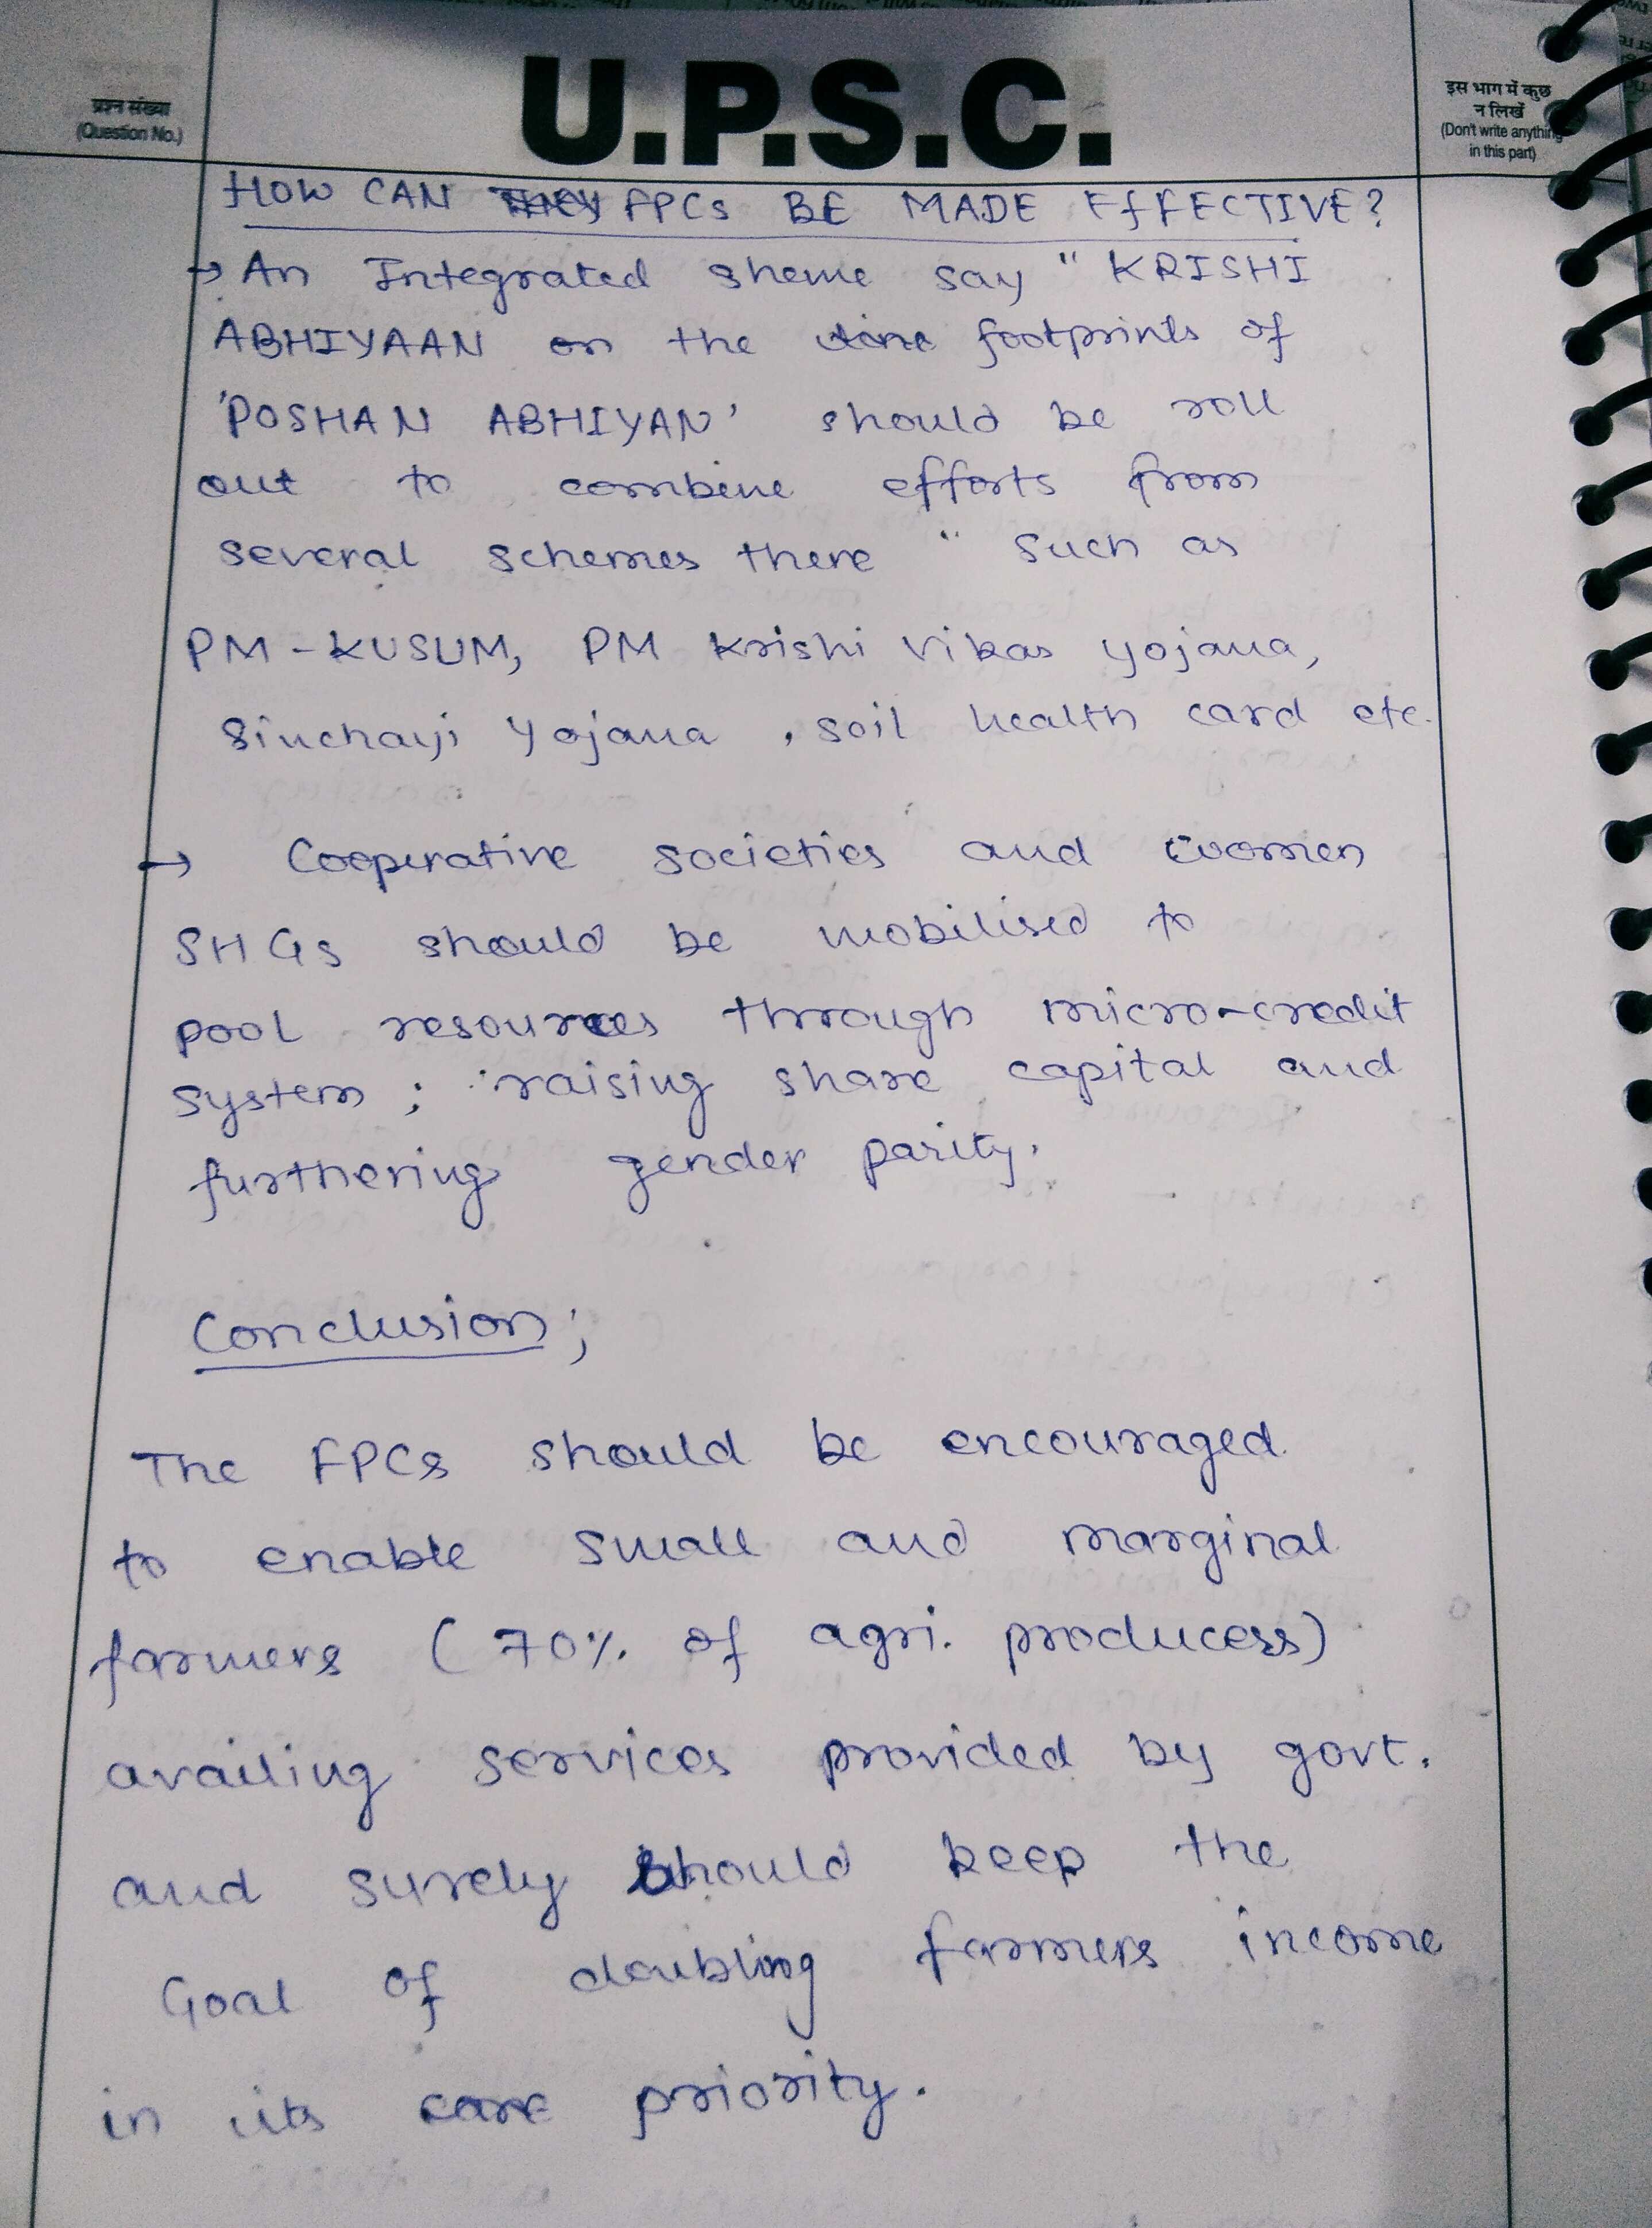 U.P.S.C.
प्रश्न संख्या
(Question No.)
इस भाग में कुछ
न लिखें
(Don't write anything
in this part)
HOW CAN FPCs BE MADE EFFECTIVE?
→ An Integrated sheme say " KRISHI
ABHIYAAN on the footprints of
'POSHAN ABHIYAN' should be roll
out to combine efforts from
several schemes there " such as
PM-KUSUM, PM Krishi Vikas Yojana,
Sinchayi Yojana , soil health card etc.
→ Cooperative societies and women
SHGs should be mobilised to
pool resources through micro-credit
system ; raising share capital and
furthering gender parity.
Conclusion ;
The FPCs should be encouraged
to enable small and marginal
farmers ( 70% of agri. producess)
availing services provided by govt.
and surely should keep the
Goal of doubling farmers income
in its core priority.